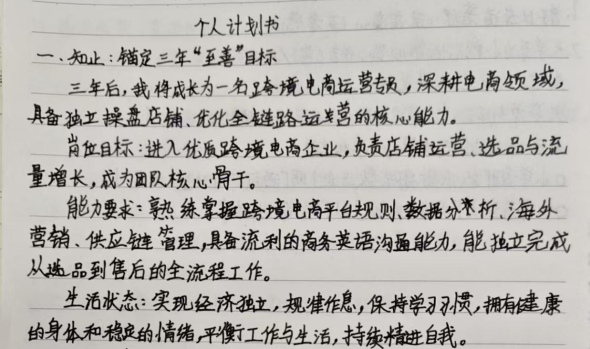 个人计划书
一、知止：锚定三年“至善”目标
三年后，我将成长为一名跨境电商运营专员，深耕电商领域，
具备独立操盘店铺、优化全链路运营的核心能力。
岗位目标：进入优质跨境电商企业，负责店铺运营、选品与流
量增长，成为团队核心骨干。
能力要求：熟练掌握跨境电商平台规则、数据分析、海外
营销、供应链管理，具备流利的商务英语沟通能力，能独立完成
从选品到售后的全流程工作。
生活状态：实现经济独立，规律作息，保持学习习惯，拥有健康
的身体和稳定的情绪，平衡工作与生活，持续精进自我。